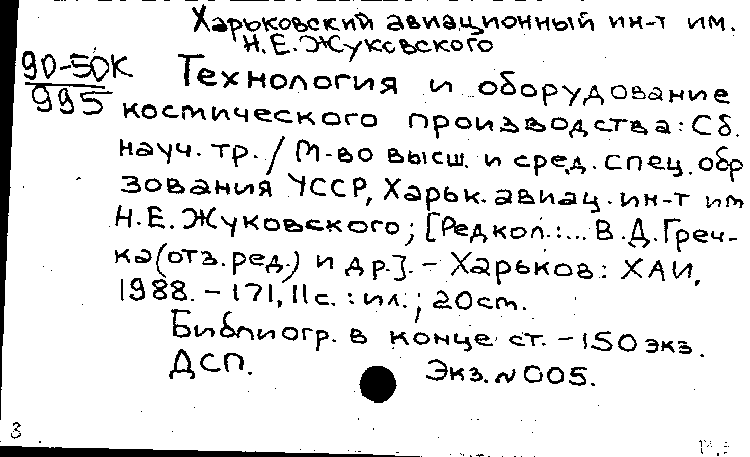 Харьковский авиационный ин-т им.
Н.Е.Жуковского
90-50К
995
Технология и оборудование
космического производства: Сб.
науч. тр. / М-во высш. и сред. спец. обр
зования УССР, Харьк. авиац. ин-т им
Н.Е.Жуковского; [Редкол.:... В.Д.Греч-
ка (отв. ред.) и др.]. - Харьков: ХАИ,
1988. - 171, II с. : ил. ; 20 см.
Библиогр. в конце ст. - 150 экз.
ДСП.
Экз. № 005.
3